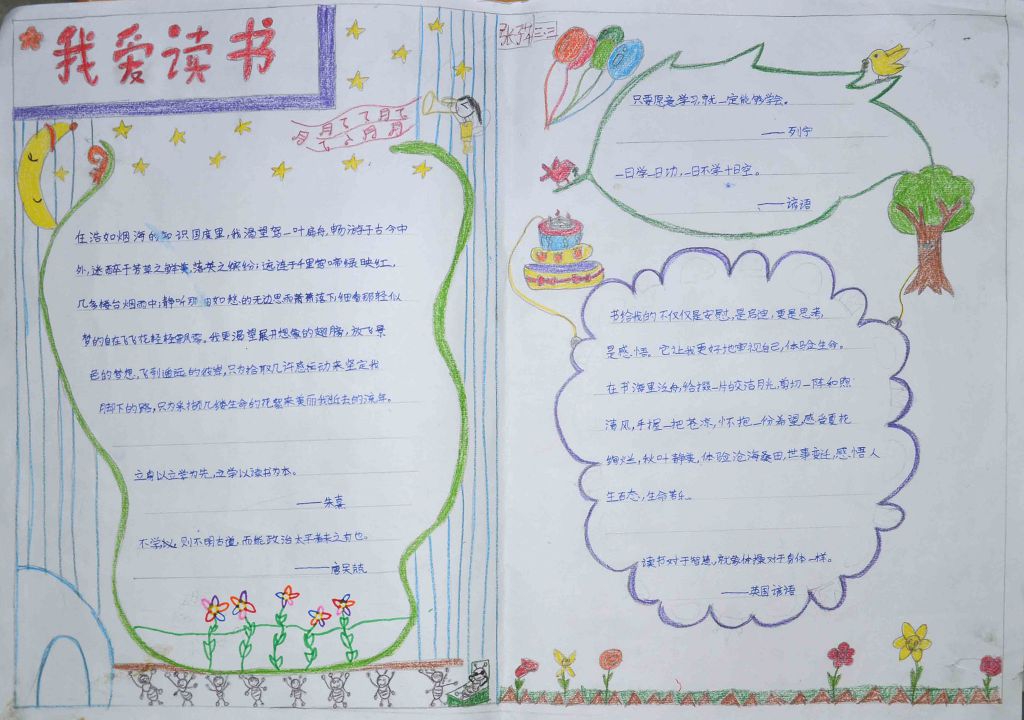 我爱读书
在浩如烟海的知识国度里,我渴望驾一叶扁舟,畅游于古今中
外,迷醉于芳草之鲜美,落英之缤纷;流连于千里莺啼绿映红,
几多楼台烟雨中;静听那如愁的无边思雨萧萧落下,细看那轻似
梦的自在飞花轻轻飘零。我更渴望展开想像的翅膀,放飞景
色的梦想,飞到遥远的彼岸,只为拾取几许感动来坚定我
脚下的路,只为采撷几缕生命的花絮来美丽我逝去的流年。
立身以立学为先,立学以读书为本。
——朱熹
不学,则不明古道,而能政治太平者未之有也。
——唐吴兢
张 三.三
只要愿意学习,就一定能够学会。
——列宁
一日学一日功,一日不学十日空。
——谚语
书给我的不仅仅是安慰,是启迪,更是思考,
是感悟。它让我更好地审视自己,体验生命。
在书海里泛舟,给掇一片皎洁月光,剪切一阵和煦
清风,手握一把苍凉,怀抱一份希望,感受夏花
绚烂,秋叶静美,体验沧海桑田,世事变迁,感悟人
生百态,生命苦乐。
读书对于智慧,就象体操对于身体一样。
——英国谚语